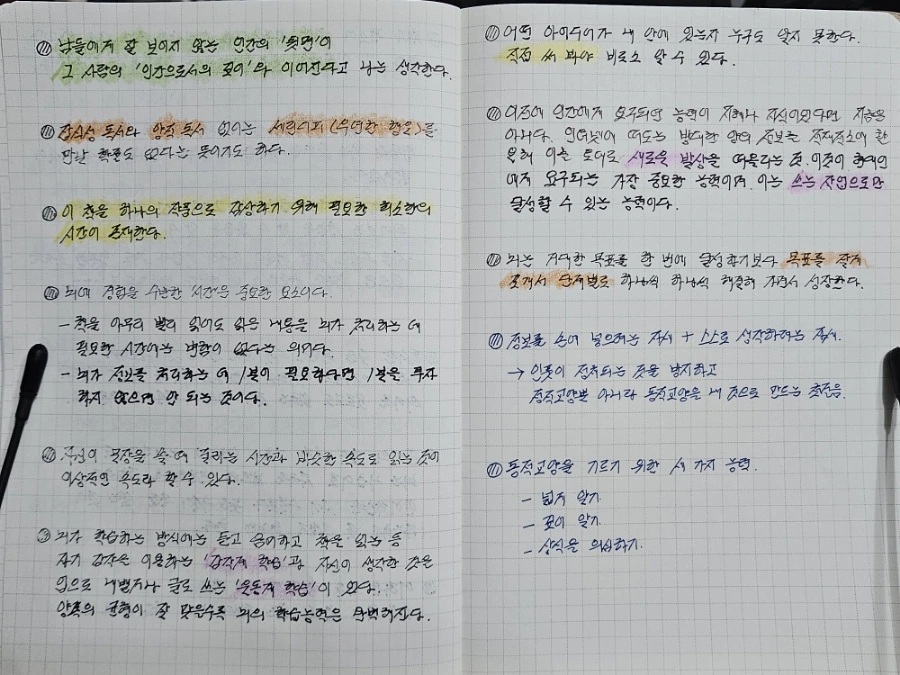 남들에게 잘 보이지 않는 인간의 '뒷면'이
그 사람의 '인간으로서의 깊이'와 이어진다고 나는 생각한다.
감식성 독서와 양적 독서 없이는 세렌디피(우연한 행운)를
만날 확률도 없다는 뜻이기도 하다.
이 책을 하나의 작품으로 감상하기 위해 필요한 최소한의
시간이 존재한다.
뇌에 경험을 수반한 '시간'은 중요한 요소이다.
- 책을 아무리 빨리 읽어도 읽은 내용을 뇌가 처리하는 데
필요한 시간에는 변함이 없다는 의미다.
- 뇌가 정보를 처리하는 데 1분이 필요하다면 1분을 투자
하지 않으면 안 되는 것이다.
자신이 문장을 쓸 때 걸리는 시간과 비슷한 속도로 읽는 것이
이상적인 속도라 할 수 있다.
뇌가 학습하는 방식에는 듣고 음미하고 책을 읽는 등
감각을 이용하는 '감각적 학습'과 자신이 생각한 것을
입으로 내뱉거나 글로 쓰는 '운동적 학습'이 있다.
양쪽의 균형이 잘 맞을수록 뇌의 학습능력은 탄력해진다.
어떤 아이디어가 내 안에 있는지 누구도 알지 못한다.
직접 써 봐야 비로소 알 수 있다.
이전에 인간에게 요구되던 능력이 지혜나 지식이었다면 지금은
아니다. 인터넷에 떠도는 방대한 양의 정보를 적재적소에 활
용해 이를 토대로 새로운 발상을 떠올리는 것. 이것이 현대인
에게 요구되는 가장 중요한 능력이며 이는 쓰는 작업으로만
달성할 수 있는 능력이다.
뇌는 거대한 목표를 한 번에 달성하기보다 목표를 잘게
쪼개서 단계별로 하나씩 하나씩 해결해 가면서 성장한다.
정보를 손에 넣으려는 자세 + 스스로 생각하려는 자세.
→ 인풋이 정체되는 것을 방지하고
정적교양뿐 아니라 동적교양을 내 것으로 만드는 첫걸음.
동적교양을 기르기 위한 세 가지 능력.
- 넓게 알기
- 깊이 알기
- 상식을 의심하기.